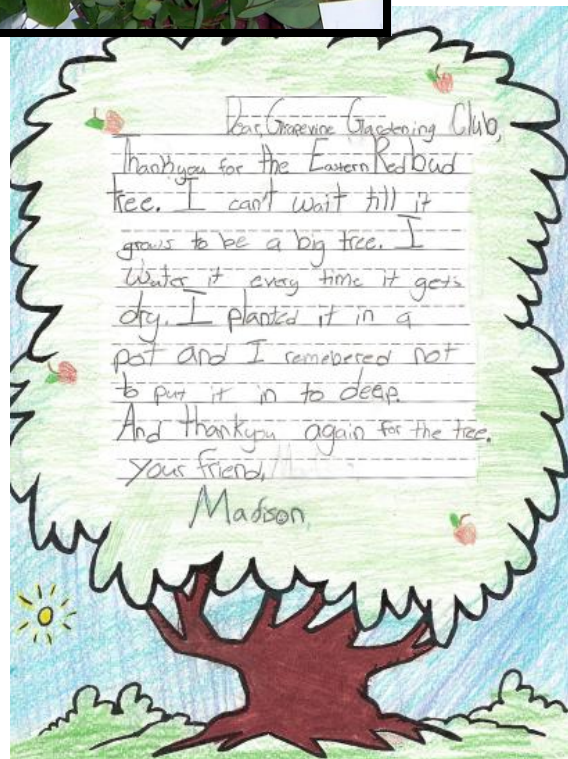 Dear, Grapevine Gardening Club,
Thankyou for the Eastern Redbud
tree. I can't wait till it
grows to be a big tree. I
Water it every time it gets
dry. I planted it in a
pot and I remebered not
to put it in to deep.
And thankyou again for the tree.
your friend,
Madison